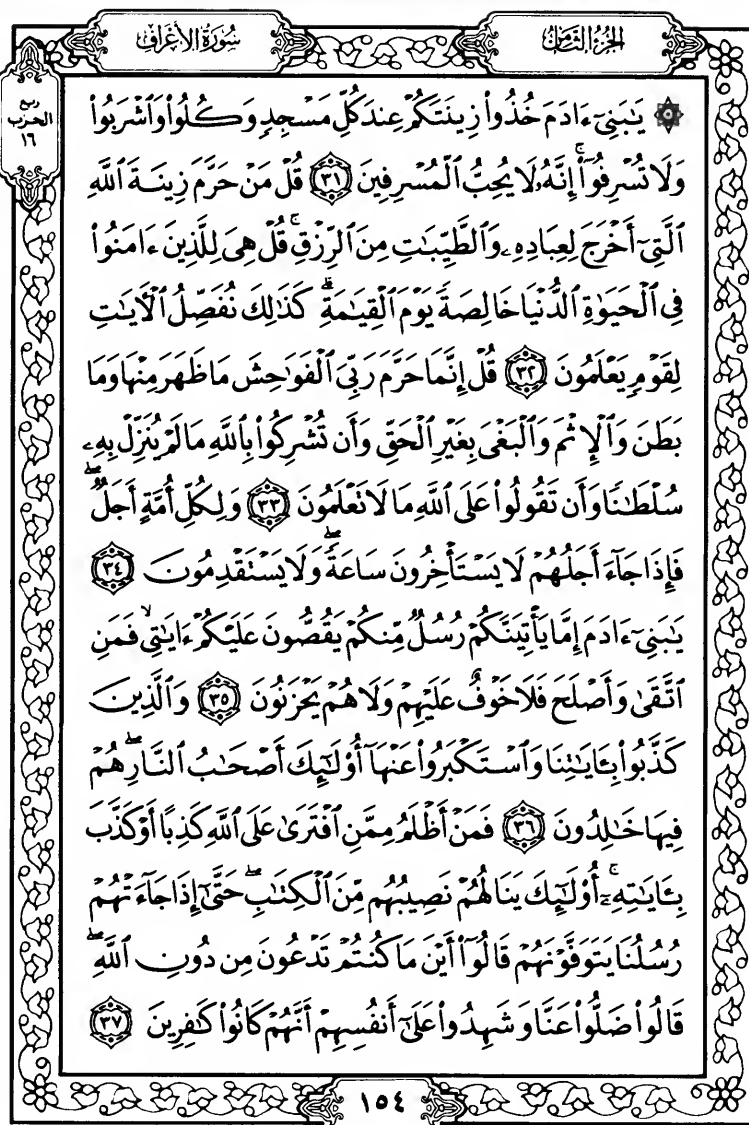 الجزء الثامن
سورة الأعراف
ربع
الحزب
١٦
۞ يَٰبَنِىٓ ءَادَمَ خُذُوا۟ زِينَتَكُمْ عِندَ كُلِّ مَسْجِدٍ وَكُلُوا۟ وَٱشْرَبُوا۟
وَلَا تُسْرِفُوٓا۟ ۚ إِنَّهُۥ لَا يُحِبُّ ٱلْمُسْرِفِينَ ﴿٣١﴾ قُلْ مَنْ حَرَّمَ زِينَةَ ٱللَّهِ
ٱلَّتِىٓ أَخْرَجَ لِعِبَادِهِۦ وَٱلطَّيِّبَٰتِ مِنَ ٱلرِّزْقِ ۚ قُلْ هِىَ لِلَّذِينَ ءَامَنُوا۟
فِى ٱلْحَيَوٰةِ ٱلدُّنْيَا خَالِصَةً يَوْمَ ٱلْقِيَٰمَةِ ۗ كَذَٰلِكَ نُفَصِّلُ ٱلْءَايَٰتِ
لِقَوْمٍ يَعْلَمُونَ ﴿٣٢﴾ قُلْ إِنَّمَا حَرَّمَ رَبِّىَ ٱلْفَوَٰحِشَ مَا ظَهَرَ مِنْهَا وَمَا
بَطَنَ وَٱلْإِثْمَ وَٱلْبَغْىَ بِغَيْرِ ٱلْحَقِّ وَأَن تُشْرِكُوا۟ بِٱللَّهِ مَا لَمْ يُنَزِّلْ بِهِۦ
سُلْطَٰنًا وَأَن تَقُولُوا۟ عَلَى ٱللَّهِ مَا لَا تَعْلَمُونَ ﴿٣٣﴾ وَلِكُلِّ أُمَّةٍ أَجَلٌ ۖ
فَإِذَا جَآءَ أَجَلُهُمْ لَا يَسْتَأْخِرُونَ سَاعَةً ۖ وَلَا يَسْتَقْدِمُونَ ﴿٣٤﴾
يَٰبَنِىٓ ءَادَمَ إِمَّا يَأْتِيَنَّكُمْ رُسُلٌ مِّنكُمْ يَقُصُّونَ عَلَيْكُمْ ءَايَٰتِى ۙ فَمَنِ
ٱتَّقَىٰ وَأَصْلَحَ فَلَا خَوْفٌ عَلَيْهِمْ وَلَا هُمْ يَحْزَنُونَ ﴿٣٥﴾ وَٱلَّذِينَ
كَذَّبُوا۟ بِـَٔايَٰتِنَا وَٱسْتَكْبَرُوا۟ عَنْهَآ أُو۟لَٰٓئِكَ أَصْحَٰبُ ٱلنَّارِ ۖ هُمْ
فِيهَا خَٰلِدُونَ ﴿٣٦﴾ فَمَنْ أَظْلَمُ مِمَّنِ ٱفْتَرَىٰ عَلَى ٱللَّهِ كَذِبًا أَوْ كَذَّبَ
بِـَٔايَٰتِهِۦٓ ۚ أُو۟لَٰٓئِكَ يَنَالُهُمْ نَصِيبُهُم مِّنَ ٱلْكِتَٰبِ ۖ حَتَّىٰٓ إِذَا جَآءَتْهُمْ
رُسُلُنَا يَتَوَفَّوْنَهُمْ قَالُوٓا۟ أَيْنَ مَا كُنتُمْ تَدْعُونَ مِن دُونِ ٱللَّهِ ۖ
قَالُوا۟ ضَلُّوا۟ عَنَّا وَشَهِدُوا۟ عَلَىٰٓ أَنفُسِهِمْ أَنَّهُمْ كَانُوا۟ كَٰفِرِينَ ﴿٣٧﴾
١٥٤